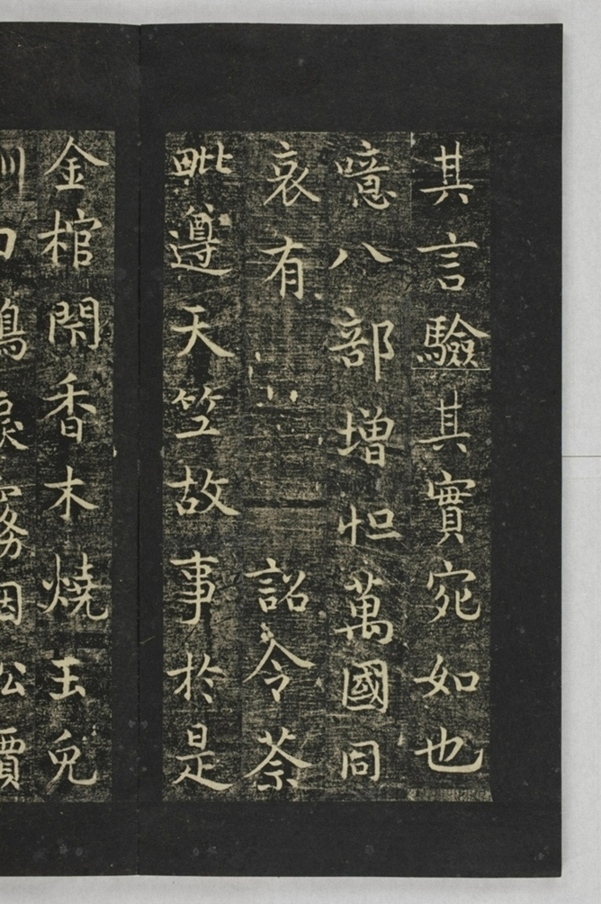 其言驗其實宛如也
噫八部增怛萬國同
哀有詔令荼
毗遵天竺故事扵是
金棺閇香木燒玉兔